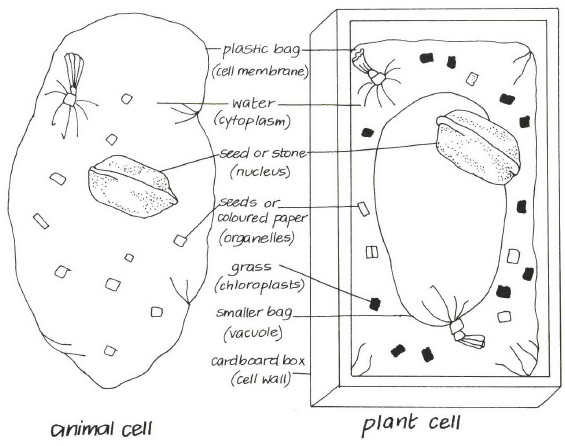 plastic bag
(cell membrane)
water
(cytoplasm)
seed or stone
(nucleus)
seeds or
coloured paper
(organelles)
grass
(chloroplasts)
smaller bag
(vacuole)
cardboard box
(cell wall)
animal cell
plant cell